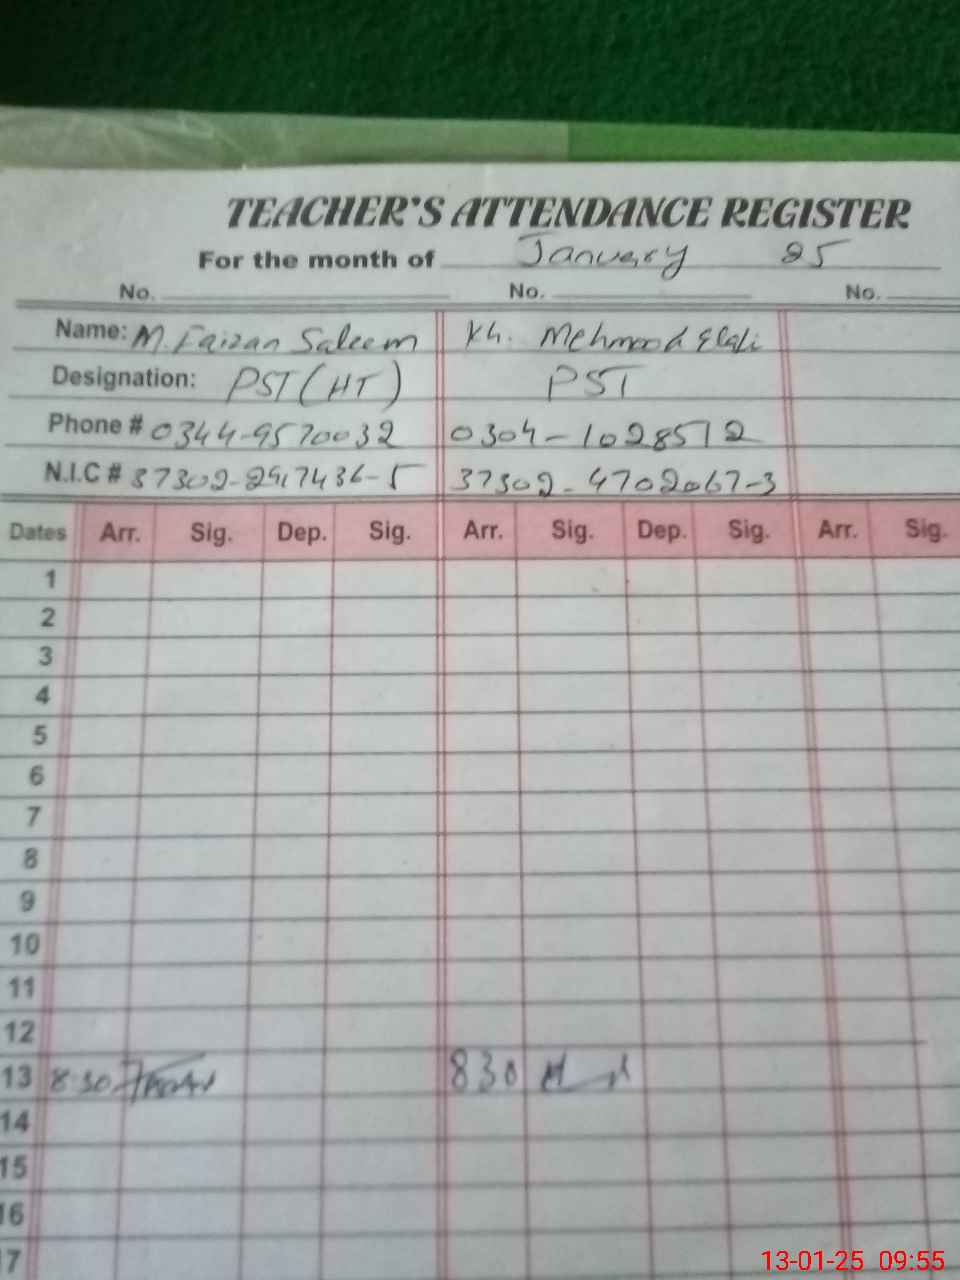 TEACHER'S ATTENDANCE REGISTER
For the month of January 25
No. No. No.
Name: M. Faizan Saleem Kh. Mehmood
Designation: PST (HT) PST
Phone # 0344-9570032 0304-1028512
N.I.C # 37302-2917436-5 37302-4702067-3
Dates Arr. Sig. Dep. Sig. Arr. Sig. Dep. Sig. Arr. Sig.
1
2
3
4
5
6
7
8
9
10
11
12
13 8:30 830
14
15
16
17
13-01-25 09:55